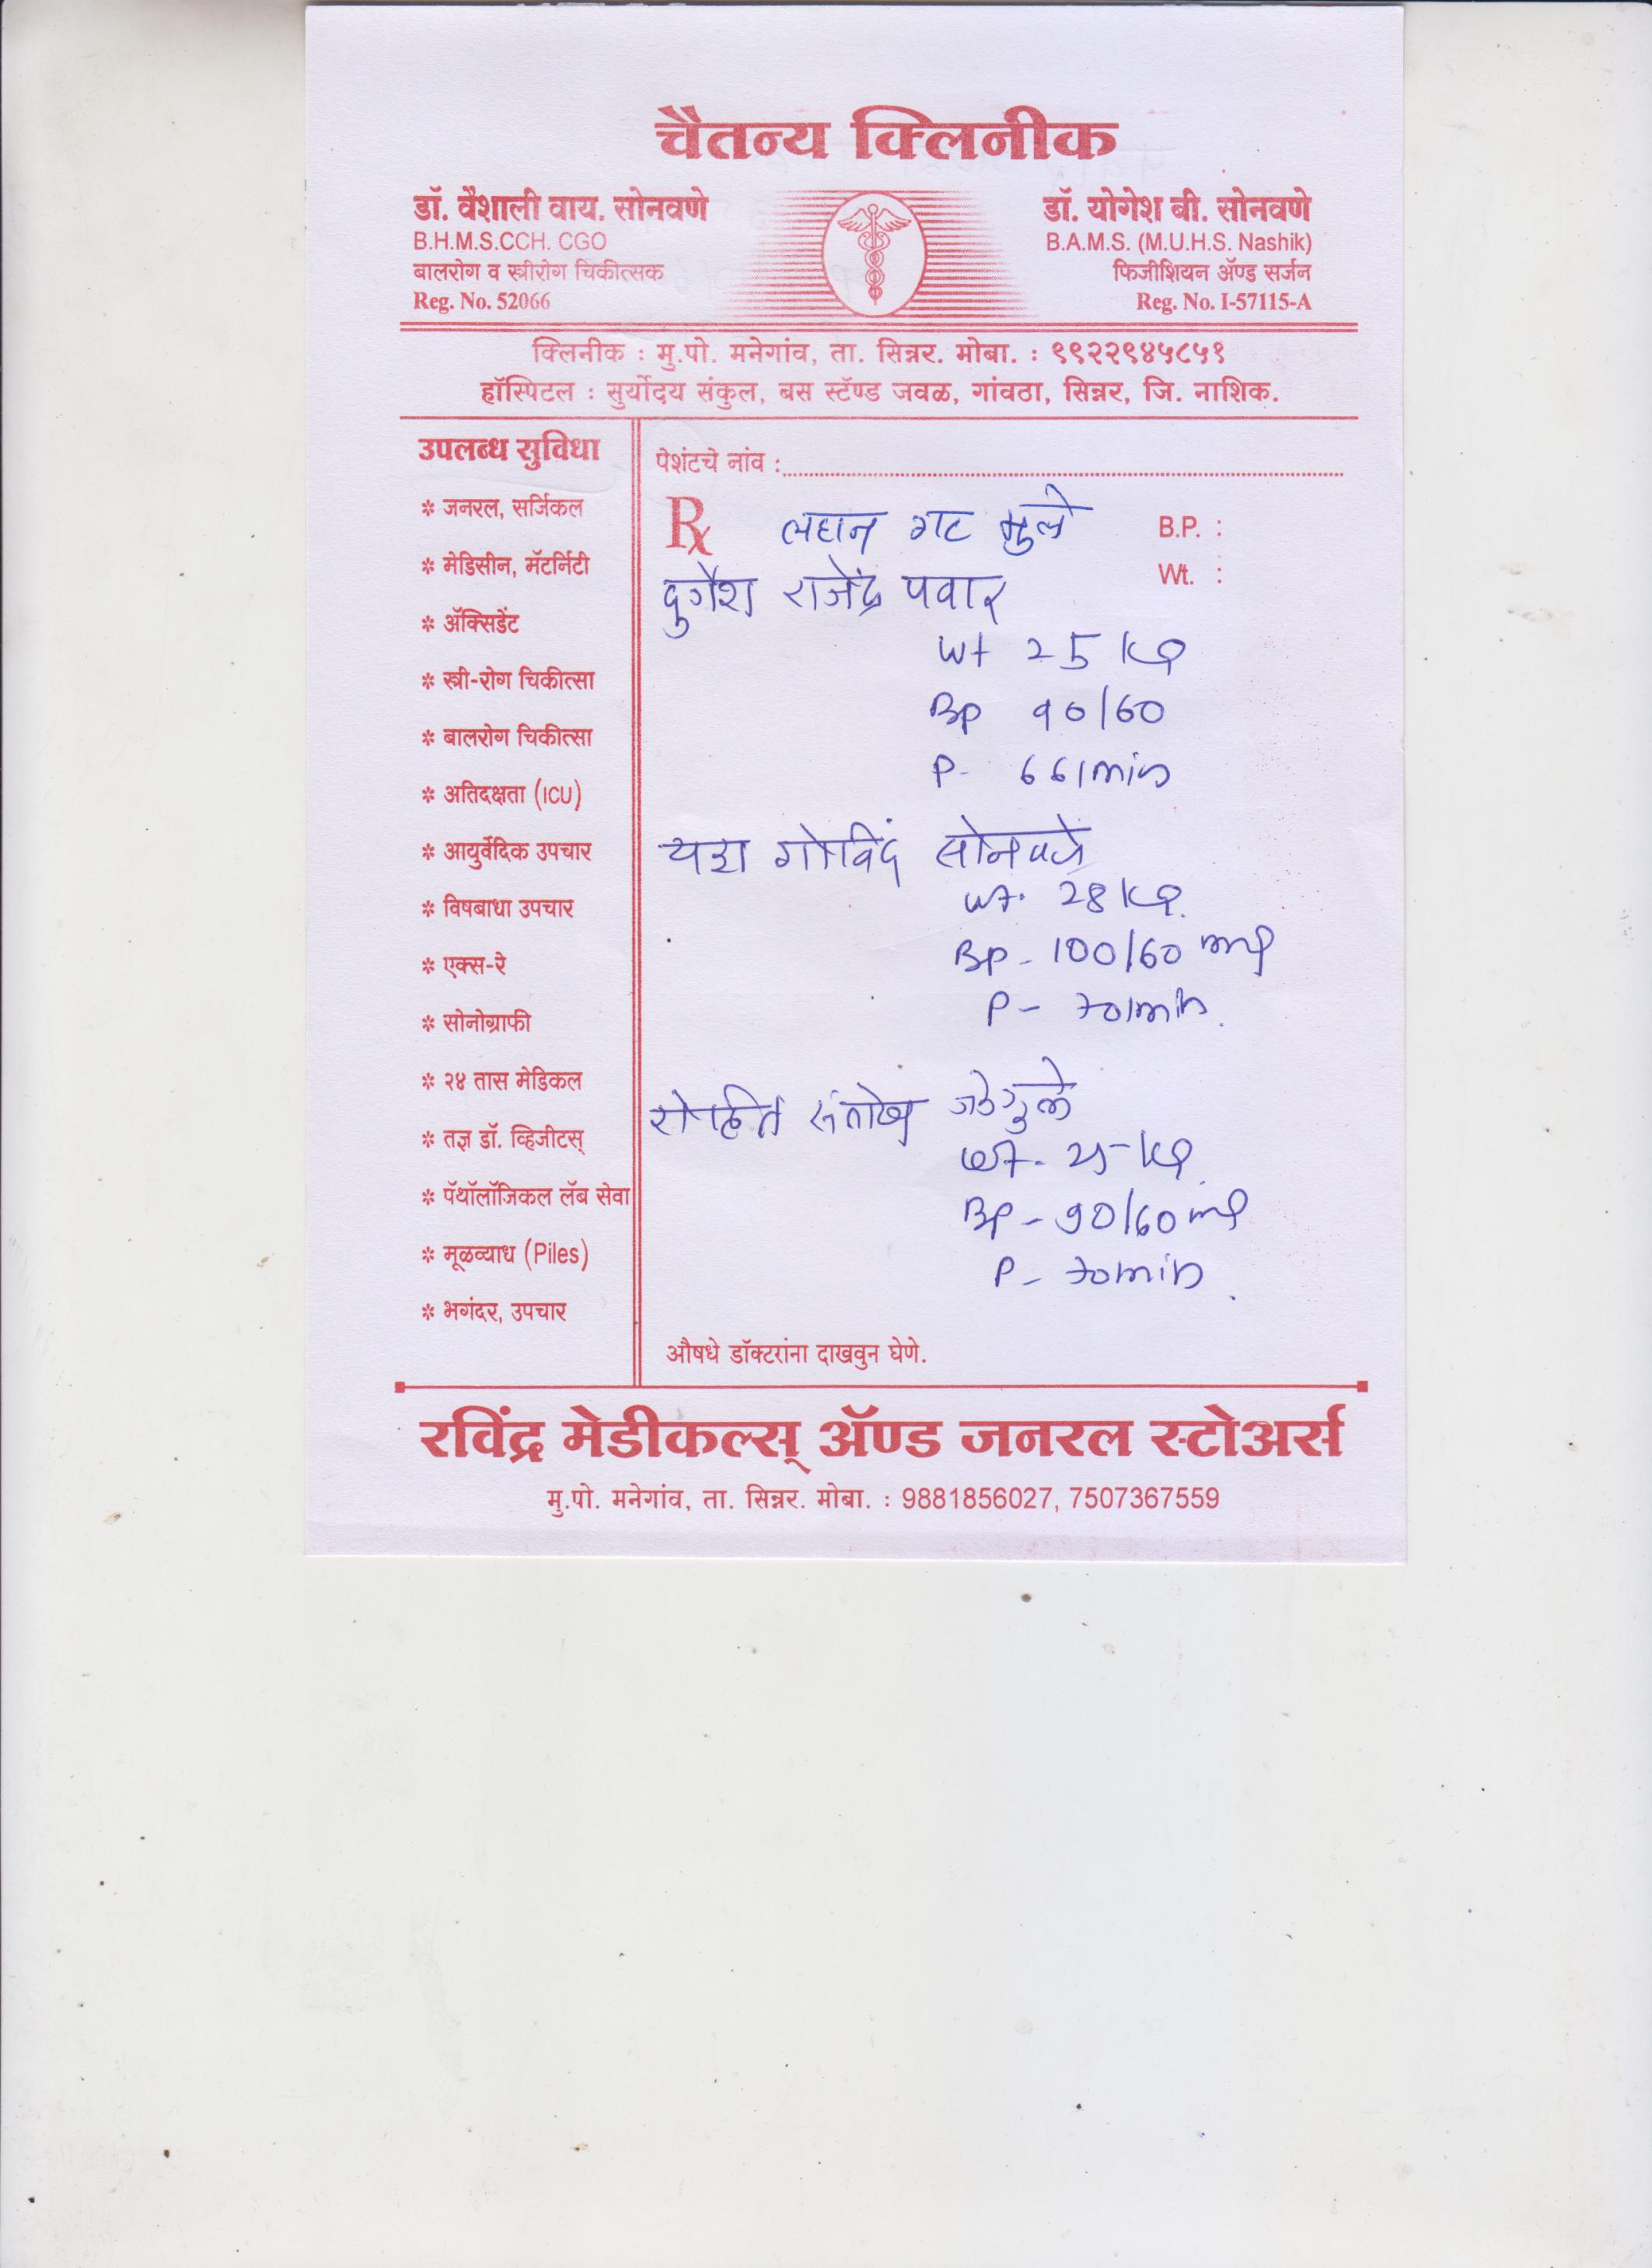 चैतन्य क्लिनीक
डॉ. वैशाली वाय. सोनवणे
B.H.M.S.CCH. CGO
बालरोग व स्त्रीरोग चिकीत्सक
Reg. No. 52066
डॉ. योगेश बी. सोनवणे
B.A.M.S. (M.U.H.S. Nashik)
फिजीशियन ॲण्ड सर्जन
Reg. No. I-57115-A
क्लिनीक : मु.पो. मनेगांव, ता. सिन्नर. मोबा. : ९९२२९४५८५१
हॉस्पिटल : सुर्योदय संकुल, बस स्टॅण्ड जवळ, गांवठा, सिन्नर, जि. नाशिक.
उपलब्ध सुविधा
* जनरल, सर्जिकल
* मेडिसीन, मॅटर्निटी
* ॲक्सिडेंट
* स्त्री-रोग चिकीत्सा
* बालरोग चिकीत्सा
* अतिदक्षता (ICU)
* आयुर्वेदिक उपचार
* विषबाधा उपचार
* एक्स-रे
* सोनोग्राफी
* २४ तास मेडिकल
* तज्ञ डॉ. व्हिजीटस्
* पॅथॉलॉजिकल लॅब सेवा
* मूळव्याध (Piles)
* भगंदर, उपचार
पेशंटचे नांव :
Rx लहान गट मुले
B.P. :
Wt. :
दुर्गेश राजेंद्र पवार
Wt 25 Kg
Bp 90/60
P- 66/min
यश गोविंद सोनवणे
Wt. 28 Kg.
Bp - 100/60 mg
P - 70/min.
रोहित संतोष
Wt. 25 Kg.
Bp - 90/60 mg
P - 70min.
औषधे डॉक्टरांना दाखवुन घेणे.
रविंद्र मेडीकल्स् ॲण्ड जनरल स्टोअर्स
मु.पो. मनेगांव, ता. सिन्नर. मोबा. : 9881856027, 7507367559